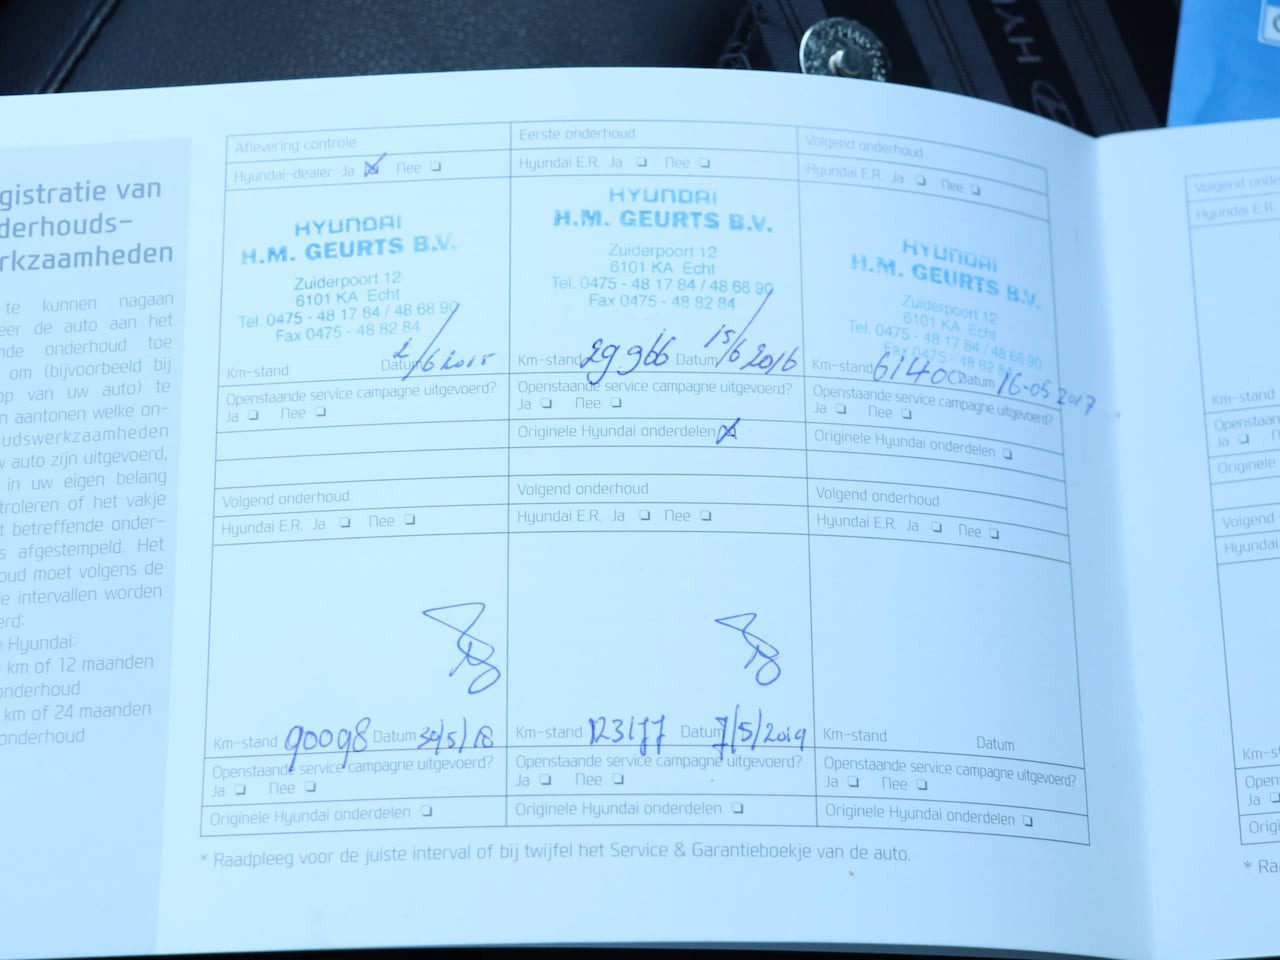 gistratie van
derhouds-
rkzaamheden
te kunnen nagaan
eer de auto aan het
nde onderhoud toe
om (bijvoorbeeld bij
op van uw auto) te
n aantonen welke on-
oudswerkzaamheden
w auto zijn uitgevoerd,
in uw eigen belang
troleren of het vakje
t betreffende onder-
s afgestempeld. Het
oud moet volgens de
e intervallen worden
erd:
Hyundai:
km of 12 maanden
onderhoud
km of 24 maanden
onderhoud
Aflevering controle
Hyundai-dealer Ja Nee
HYUNDAI
H.M. GEURTS B.V.
Zuiderpoort 12
6101 KA Echt
Tel. 0475 - 48 17 84 / 48 68 90
Fax 0475 - 48 82 84
Km-stand Datum 2/6 2015
Openstaande service campagne uitgevoerd?
Ja Nee
Eerste onderhoud
Hyundai E.R. Ja Nee
HYUNDAI
H.M. GEURTS B.V.
Zuiderpoort 12
6101 KA Echt
Tel. 0475 - 48 17 84 / 48 68 90
Fax 0475 - 48 82 84
Km-stand 29966 Datum 15/6 2016
Openstaande service campagne uitgevoerd?
Ja Nee
Originele Hyundai onderdelen
Volgend onderhoud
Hyundai E.R. Ja Nee
HYUNDAI
H.M. GEURTS B.V.
Zuiderpoort 12
6101 KA Echt
Tel. 0475 - 48 17 84 / 48 68 90
Fax 0475 - 48 82 8
Km-stand 61400 Datum 16-05 2017
Openstaande service campagne uitgevoerd?
Ja Nee
Originele Hyundai onderdelen
Volgend onderhoud
Hyundai E.R. Ja Nee
Km-stand 90098 Datum 30/5/18
Openstaande service campagne uitgevoerd?
Ja Nee
Originele Hyundai onderdelen
Volgend onderhoud
Hyundai E.R. Ja Nee
Km-stand 123177 Datum 7/5/2019
Openstaande service campagne uitgevoerd?
Ja Nee
Originele Hyundai onderdelen
Volgend onderhoud
Hyundai E.R. Ja Nee
Km-stand Datum
Openstaande service campagne uitgevoerd?
Ja Nee
Originele Hyundai onderdelen
* Raadpleeg voor de juiste interval of bij twijfel het Service & Garantieboekje van de auto.
Volgend onde
Hyundai E.R.
Km-stand
Openstaan
Ja
Originele
Volgend
Hyundai
Km-st
Open
Ja
Origi
* Ra
HY